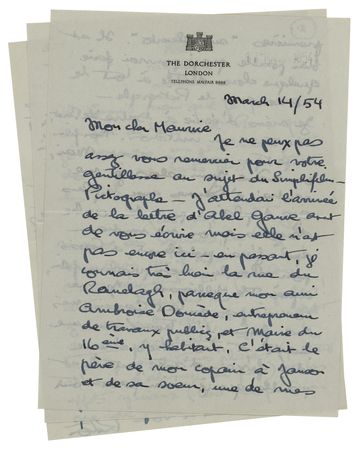 THE DORCHESTER
LONDON
TELEPHONE MAYFAIR 8888
March 14/54
Mon cher Maurice
Je ne peux pas
assez vous remercier pour votre
gentillesse au sujet du Simplifilm
Pictographe – J'attendai l'arrivée
de la lettre d'Abel Gance avant
de vous écrire mais elle n'est
pas encore ici – en passant, je
connais très bien la rue du
Ranelagh, parceque mon ami
Ambroise Domède, entrepreneur
de travaux publics, et Maire du
16ème, y habitait, C'était le
père de mon copain à Janson
et de sa soeur, une de mes